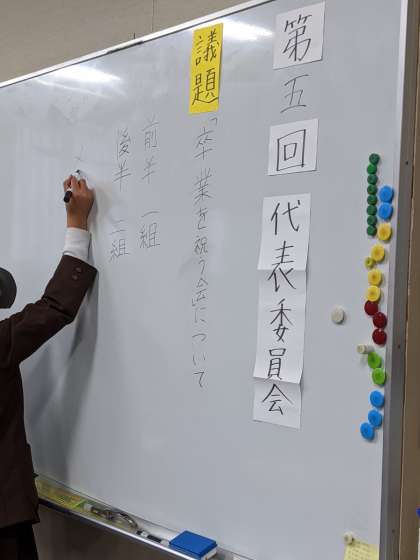 第五回 代表委員会
議題
「卒業を祝う会について
前半 一組
後半 二組